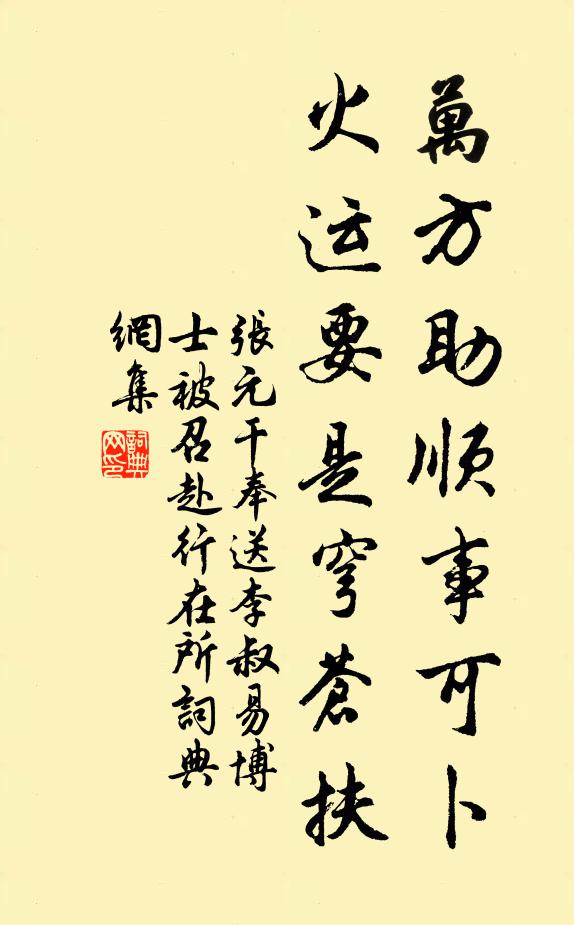 萬方助順事可卜
火运要是穹蒼扶
張元干奉送李叔易博
士被召赴行在所詞典
網集
詞典
网印